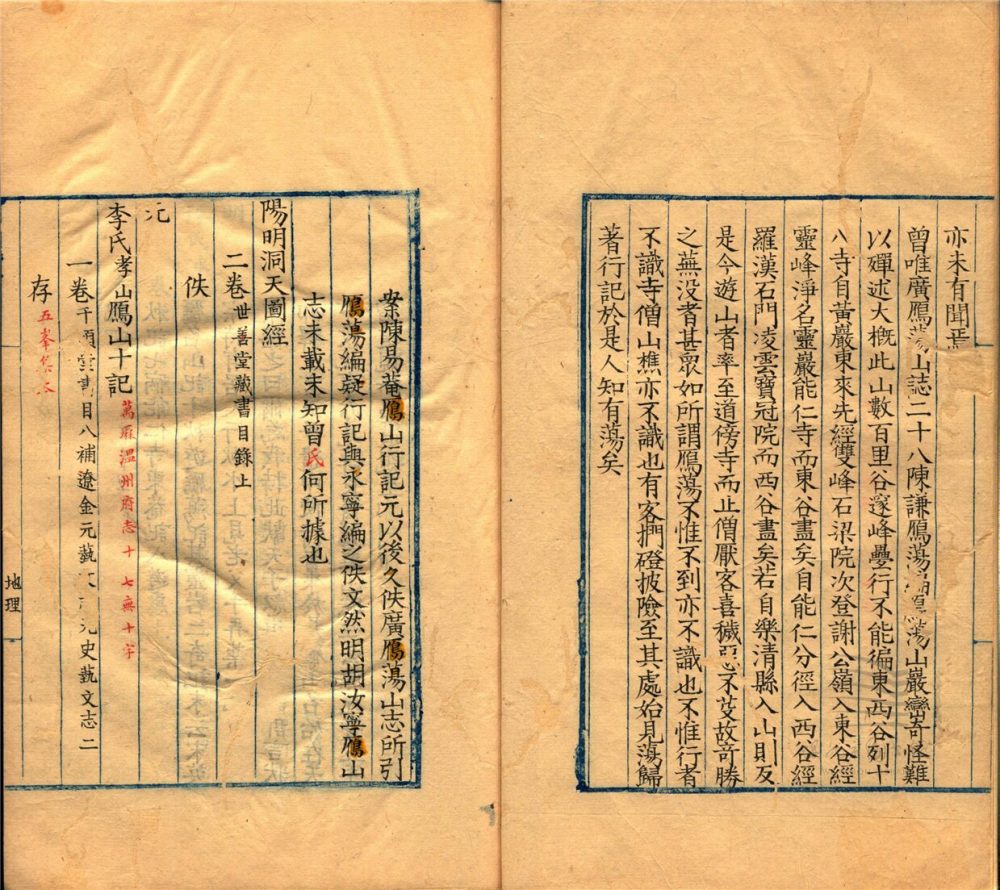 亦未有聞焉
曾唯廣鴈蕩山誌二十八陳謙鴈蕩編夏蕩山巖巒奇怪難
以殫述大概此山數百里谷邃峰疊行不能徧東西谷列十
八寺自黃巖東來先經雙峰石梁院次登謝公嶺入東谷經
靈峰淨名靈巖能仁寺而東谷盡矣自能仁分徑入西谷經
羅漢石門凌雲寶冠院而西谷盡矣若自樂清縣入山則反
是今遊山者率至道傍寺而止僧厭客喜穢惡不芟故奇勝
之蕪没者甚衆如所謂鴈蕩不惟不到亦不識也不惟行者
不識寺僧山樵亦不識也有客捫磴披險至其處始見蕩歸
著行記於是人知有蕩矣
案陳易菴鴈山行記元以後久佚廣鴈蕩山志所引
鴈蕩編疑行記與永寧編之佚文然明胡汝寧鴈山
志未載未知曾氏何所據也
陽明洞天圖經
二卷世善堂藏書目錄上
佚
元
李氏孝山鴈山十記 萬厤溫州府志十 七無十字
一卷千頃堂書目八補遼金元藝文 元史藝文志二
存五峯集本
地理